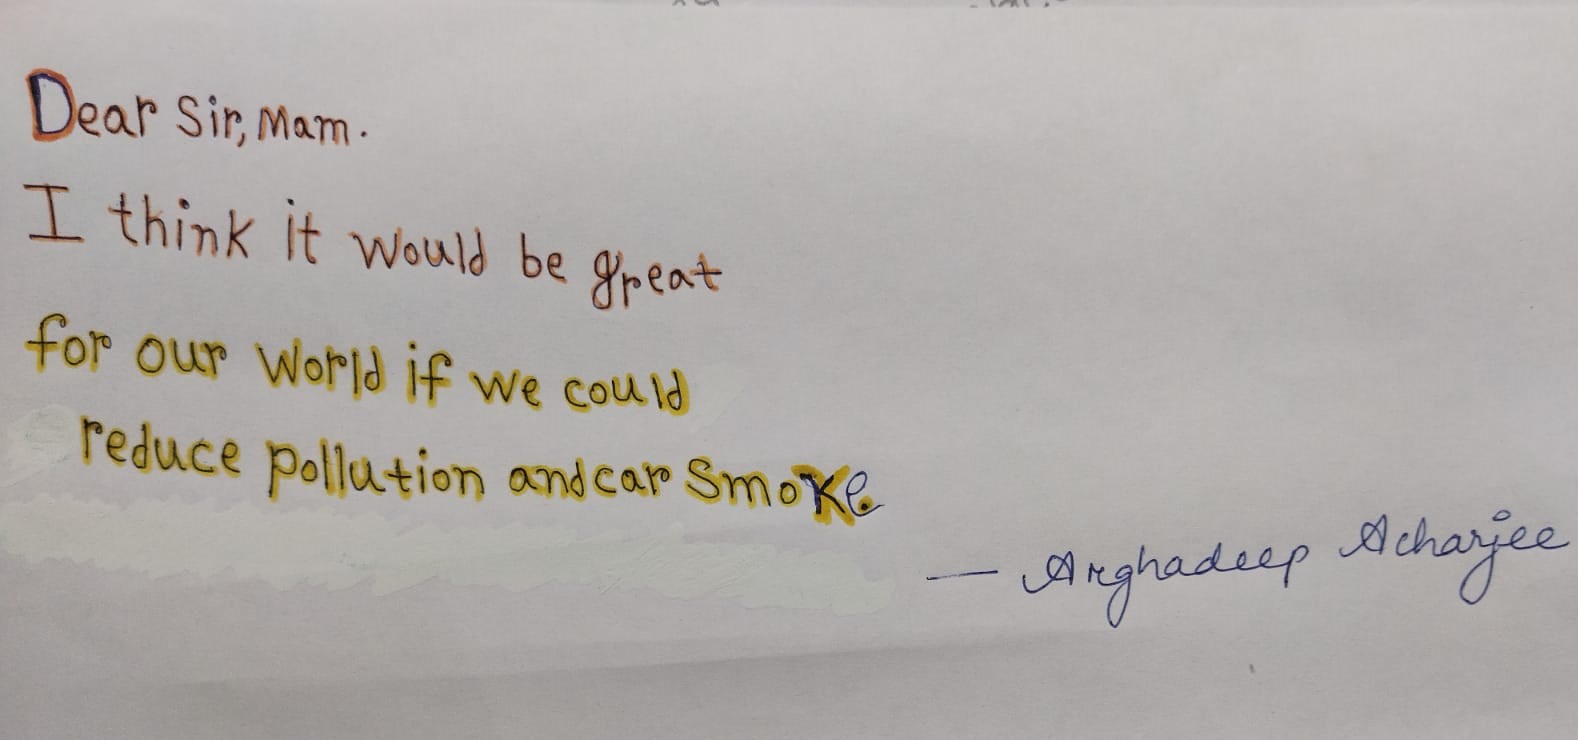 Dear Sir, Mam.
I think it would be great
for our world if we could
reduce pollution and car smoke
— Arghadeep Acharjee